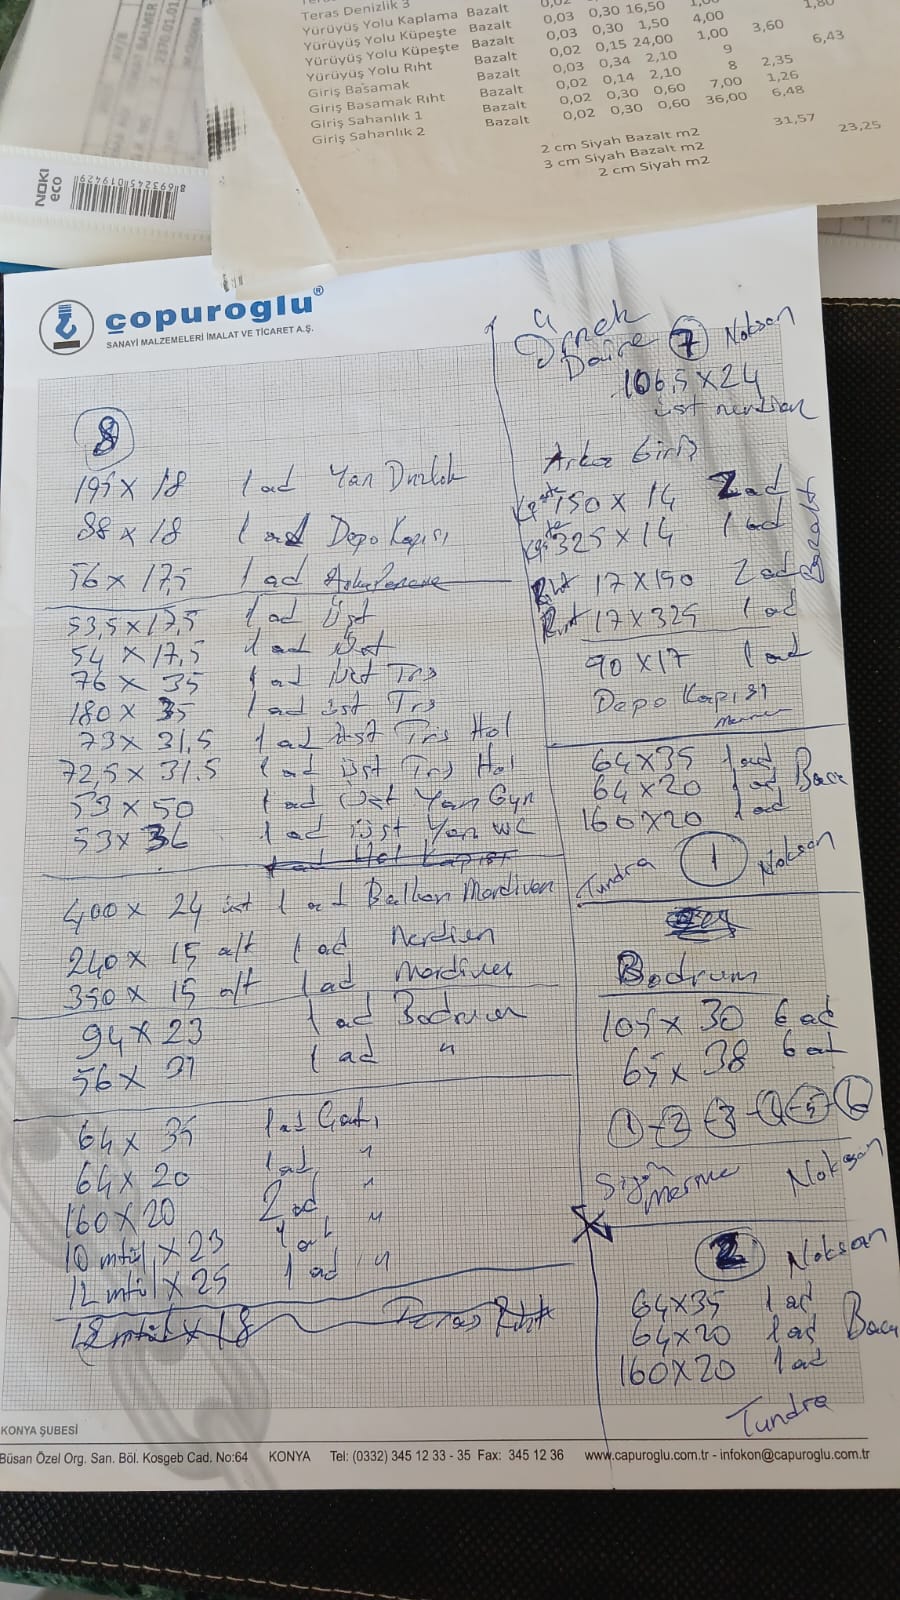 Teras Denizlik 3
Yürüyüş Yolu Kaplama Bazalt 0,02
Yürüyüş Yolu Küpeşte Bazalt 0,03 0,30 16,50
Yürüyüş Yolu Küpeşte Bazalt 0,03 0,30 1,50 4,00 1,80
Yürüyüş Yolu Rıht Bazalt 0,02 0,15 24,00 1,00 3,60
Giriş Basamak Bazalt 0,03 0,34 2,10 9 6,43
Giriş Basamak Rıht Bazalt 0,02 0,14 2,10 8 2,35
Giriş Sahanlık 1 Bazalt 0,02 0,30 0,60 7,00 1,26
Giriş Sahanlık 2 Bazalt 0,02 0,30 0,60 36,00 6,48
2 cm Siyah Bazalt m2 31,57
3 cm Siyah Bazalt m2 23,25
2 cm Siyah m2
NOKI
eco
8693245019429
çopuroglu®
SANAYİ MALZEMELERİ İMALAT VE TİCARET A.Ş.
8
195 X 18 1 ad Yan
88 X 18 1 ad Depo Kapısı
56 X 17,5 1 ad
53,5 X 17,5 1 ad Üst
54 X 17,5 1 ad Üst
76 X 35 1 ad Üst Trs
180 X 35 1 ad üst Trs
73 X 31,5 1 ad Üst Trs Hol
72,5 X 31,5 1 ad üst Trs Hol
53 X 50 1 ad Üst Yan Gyn
53 X 36 1 ad üst Yan WC
400 X 24 üst 1 ad Balkon Merdiven
240 X 15 alt 1 ad Merdiven
350 X 15 alt 1 ad Merdiven
94 X 23 1 ad Bodrum
56 X 31 1 ad "
64 X 35 1 ad Çatı
64 X 20 1 ad "
160 X 20 2 ad "
10 mtül X 23 1 ad "
12 mtül X 25 1 ad "
18 mtül X 18 Teras Rıht
Örnek
Daire 7 Noksan
106,5 X 24
üst merdiven
Arka Giriş
150 X 14 2 ad
325 X 14 1 ad
Rıht 17 X 150 2 ad
Rıht 17 X 325 1 ad
Bazalt
90 X 17 1 ad
Depo Kapısı
Mermer
64 X 35 1 ad
64 X 20 1 ad Baca
160 X 20 1 ad
Tundra 1 Noksan
Bodrum
105 X 30 6 ad
65 X 38 6 ad
1 - 2 - 3 - 4 - 5 - 6
Siyah Mermer Noksan
2 Noksan
64 X 35 1 ad
64 X 20 1 ad Baca
160 X 20 1 ad
Tundra
KONYA ŞUBESİ
Büsan Özel Org. San. Böl. Kosgeb Cad. No:64 KONYA Tel: (0332) 345 12 33 - 35 Fax: 345 12 36 www.capuroglu.com.tr - infokon@capuroglu.com.tr